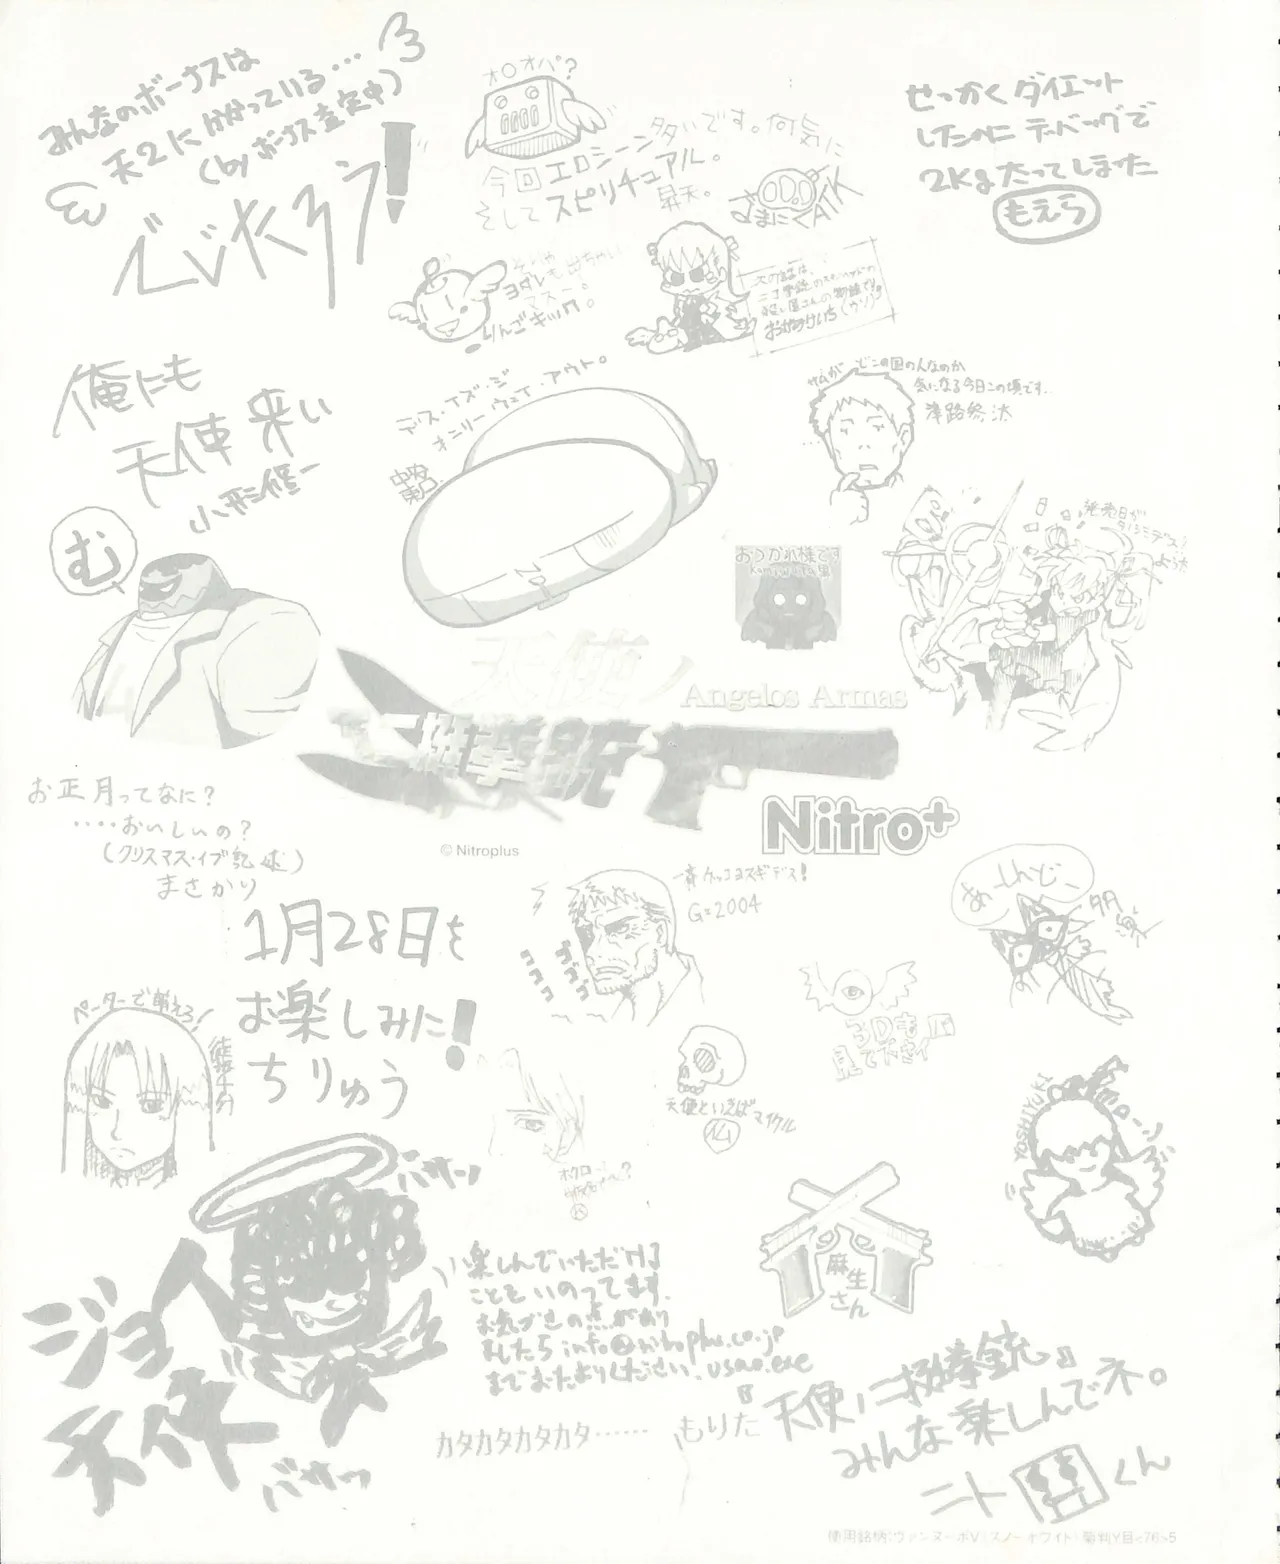 みんなのボーナスは
天2に分かっている…
(byボーナス査定中)
でじたろう!
オ〇オパ?
今回エロシーン多いです。何気に
そしてスピリチュアル。
昇天。
なまにくATK
せっかくダイエット
したのに デバッグで
2Kg太ってしまった
もえら
ヨダレも出ちゃい
マスー。
りんごキック。
俺にも
天使来い
小形修一
む
ディス・イズ・ジ
オンリー・ウェイ・アウト。
中央
東口
サムがどこの国の人なのか
気になる今日この頃です..
津路参汰
おつかれ様です
発売日が
天使ノ
二挺拳銃
Angelos Armas
Nitro+
© Nitroplus
お正月ってなに?
‥‥おいしいの?
(クリスマス・イブ記述)
まさかり
1月28日を
お楽しみに!
ちりゅう
一斉ケッコヨスギデス!
G=2004
ゴゴゴ
ゴゴゴゴ
あーしんどー
3Dも
見て下さイ
ペーターで萌えろ!
天使といえばマイケル
仏
ホクロ
YOSHIYUKI
バサッ
ジョイ
天使
バサッ
楽しんでいただける
ことをいのってます.
お気づきの点があり
ましたら info@nitroplus.co.jp
までおたよりください. usao.exe
麻生
さん
カタカタカタカタ…… もりた
『天使ノ二挺拳銃』
みんな楽しんでネ。
ニトロくん
使用銘柄:ヴァンヌーボV スノーホワイト 菊判Y目<76>5